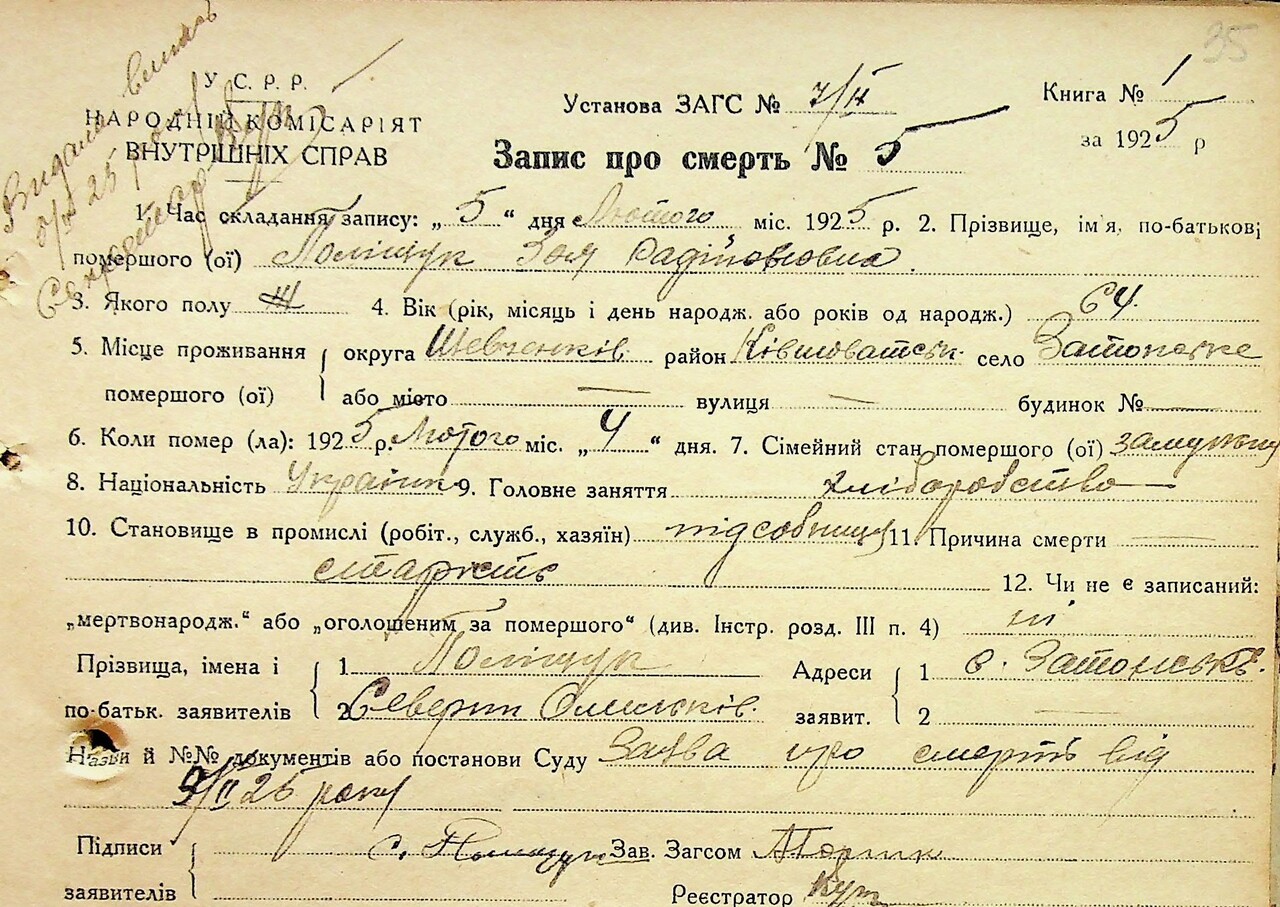 35
Видано виписъ
У. С. Р. Р.
НАРОДНІЙ КОМІСАРІЯТ
ВНУТРІШНІХ СПРАВ
Установа ЗАГС № 7/ІІ
Книга № 1
за 1925 р
Запис про смерть № 5
1. Час складання запису: „ 5 “ дня Лютого міс. 1925 р. 2. Прізвище, ім'я, по-батькові
помершого (ої) Поліщук Зоя Радіоновна.
3. Якого полу Ж 4. Вік (рік, місяць і день народж. або років од народж.) 64
5. Місце проживання округа Шевченків. район Ківшоватськ. село Затонське
помершого (ої) або місто — вулиця — будинок № —
6. Коли помер (ла): 1925 р. Лютого міс. „ 4 “ дня. 7. Сімейний стан помершого (ої) замужня
8. Національність Українк 9. Головне заняття хліборобство —
10. Становище в промислі (робіт., служб., хазяїн) підсобниця 11. Причина смерти
старість 12. Чи не є записаний:
„мертвонародж.“ або „оголошеним за помершого“ (див. Інстр. розд. III п. 4) ні
Прізвища, імена і 1 Поліщук Адреси 1 с. Затонськ.
по-батьк. заявителів 2 Северин заявит. 2 —
Назви й №№ документів або постанови Суду Заява про смерть від
5/ІІ 25 року
Підписи С. Полищук Зав. Загсом
заявителів Реєстратор